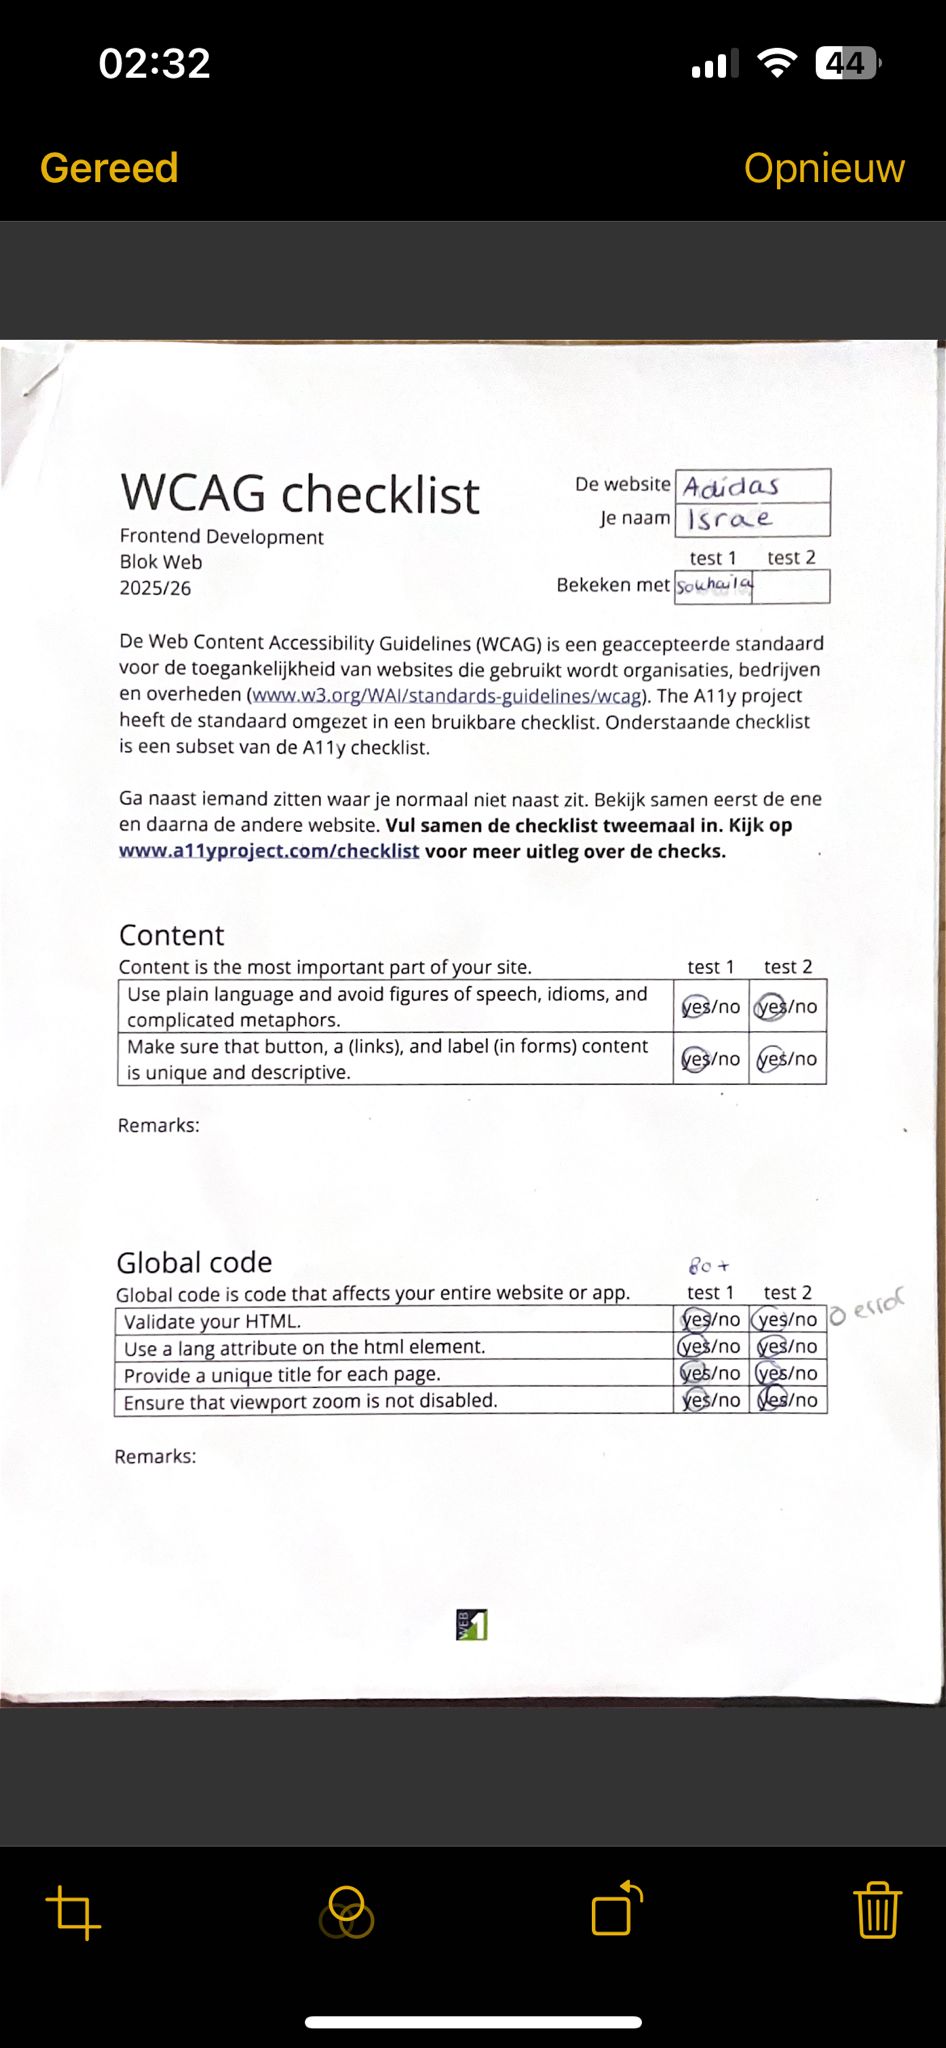 02:32
44
Gereed
Opnieuw
WCAG checklist
Frontend Development
Blok Web
2025/26
De website Adidas
Je naam Israe
test 1 test 2
Bekeken met Souhaila
De Web Content Accessibility Guidelines (WCAG) is een geaccepteerde standaard
voor de toegankelijkheid van websites die gebruikt wordt organisaties, bedrijven
en overheden (www.w3.org/WAI/standards-guidelines/wcag). The A11y project
heeft de standaard omgezet in een bruikbare checklist. Onderstaande checklist
is een subset van de A11y checklist.
Ga naast iemand zitten waar je normaal niet naast zit. Bekijk samen eerst de ene
en daarna de andere website. Vul samen de checklist tweemaal in. Kijk op
www.a11yproject.com/checklist voor meer uitleg over de checks.
Content
Content is the most important part of your site. test 1 test 2
Use plain language and avoid figures of speech, idioms, and
complicated metaphors. yes/no yes/no
Make sure that button, a (links), and label (in forms) content
is unique and descriptive. yes/no yes/no
Remarks:
Global code 80+
Global code is code that affects your entire website or app. test 1 test 2
Validate your HTML. yes/no yes/no 0 error
Use a lang attribute on the html element. yes/no yes/no
Provide a unique title for each page. yes/no yes/no
Ensure that viewport zoom is not disabled. yes/no yes/no
Remarks:
WEB 1